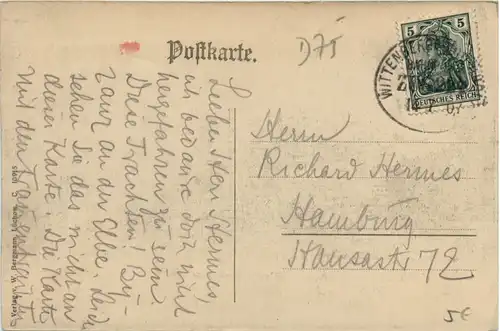 Postkarte.
D75
5
DEUTSCHES REICH
WITTENBERGE
Lieber Herr Hermes,
ich bedaure doch nicht
hergefahren zu sein.
Diese Trachten! By-
zanz an der Elbe. Leider
sehen Sie das nicht an
dieser Karte. Die Karte
Mit den
Herrn
Richard Hermes
Hamburg
Hansastr 72
5€